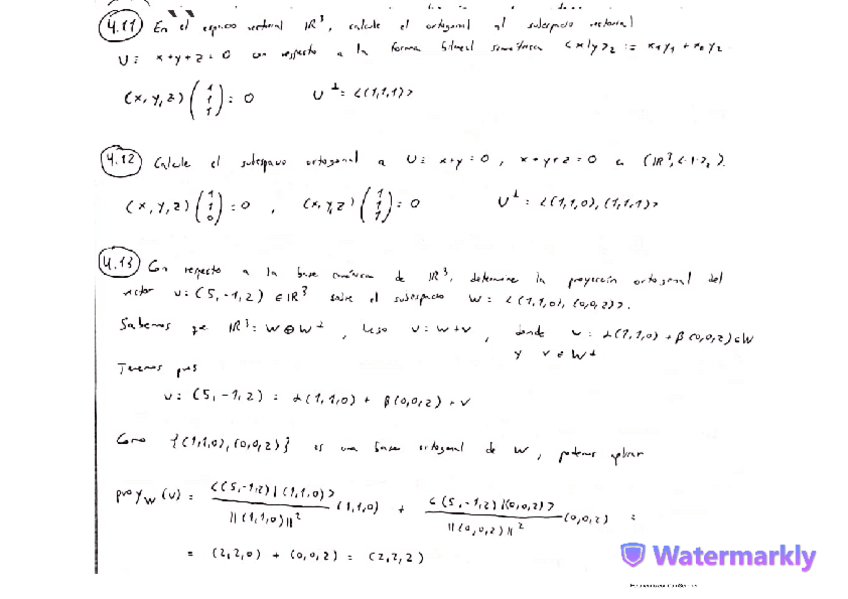 4.11 En el espacio vectorial IR³, calcule el ortogonal al subespacio vectorial
U: x+y+z=0 con respecto a la forma bilineal simétrica <x|y>₂ := x₁y₁ + x₂y₂.
(x,y,z)(1 1 1) = 0 U⊥ = <(1,1,1)>
4.12 Calcule el subespacio ortogonal a U: x+y=0, x+y+z=0 en (IR³,<·|·>₂).
(x,y,z)(1 1 0) = 0, (x,y,z)(1 1 1) = 0 U⊥ = <(1,1,0),(1,1,1)>
4.13 Con respecto a la base canónica de IR³, determine la proyección ortogonal del
vector u=(5,-1,2) ∈ IR³ sobre el subespacio W = <(1,1,0),(0,0,2)>.
Sabemos que IR³ = W ⊕ W⊥, luego u = w+v, donde w = α(1,1,0) + β(0,0,2) ∈ W
y v ∈ W⊥
Tenemos pues
u = (5,-1,2) = α(1,1,0) + β(0,0,2) + v
Como {(1,1,0),(0,0,2)} es una base ortogonal de W, podemos aplicar
proy_W(u) = <(5,-1,2)|(1,1,0)> / ||(1,1,0)||² (1,1,0) + <(5,-1,2)|(0,0,2)> / ||(0,0,2)||² (0,0,2) =
= (2,2,0) + (0,0,2) = (2,2,2)
Watermarkly